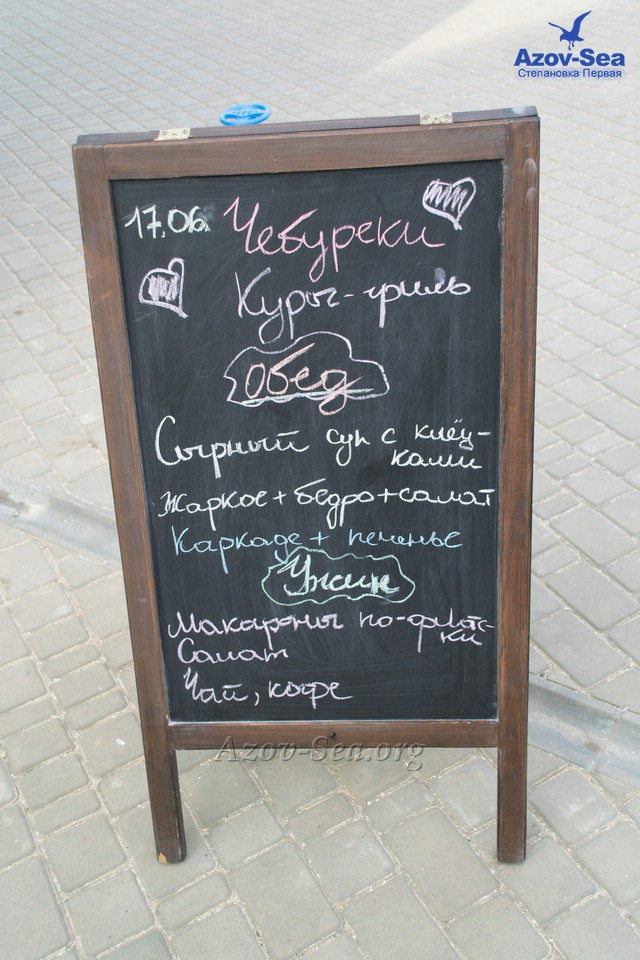 Azov-Sea
Степановка Первая
17.06. Чебуреки
Куры-гриль
Обед
Сырный суп с клёц-
ками
Жаркое + бедро + салат
Каркаде + печенье
Ужин
Макароны по-флотс-
ки
Салат
Чай, кофе
Azov-Sea.org